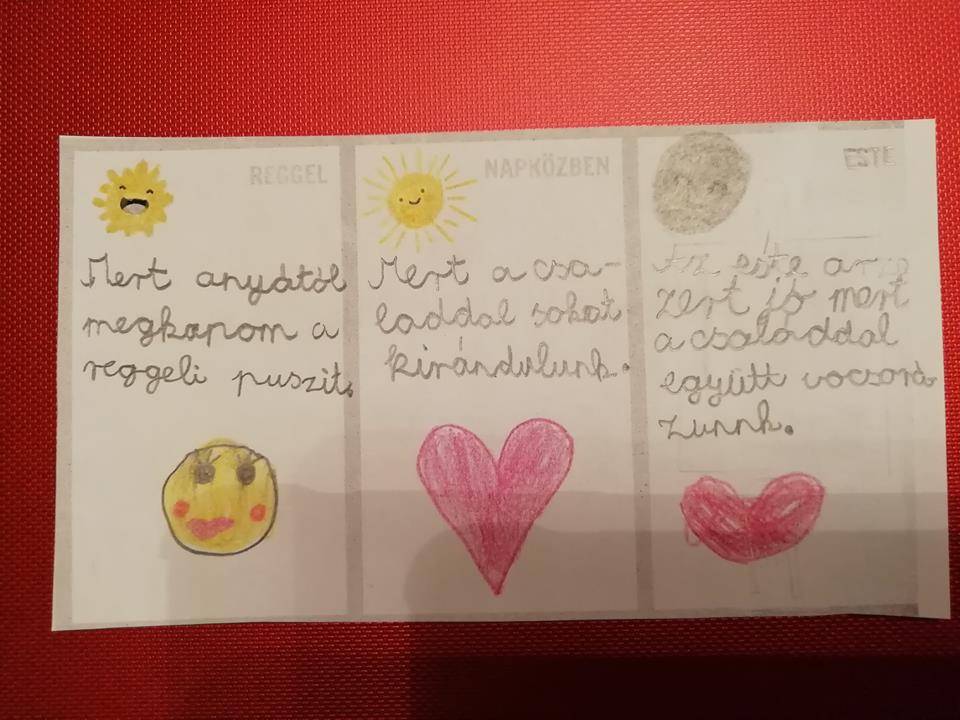 REGGEL
Mert anyától
megkapom a
reggeli puszit.
NAPKÖZBEN
Mert a csa-
laddal sokat
kirándulunk.
ESTE
Az este
zert jó mert
a családdal
együtt vocsorá
zunnk.